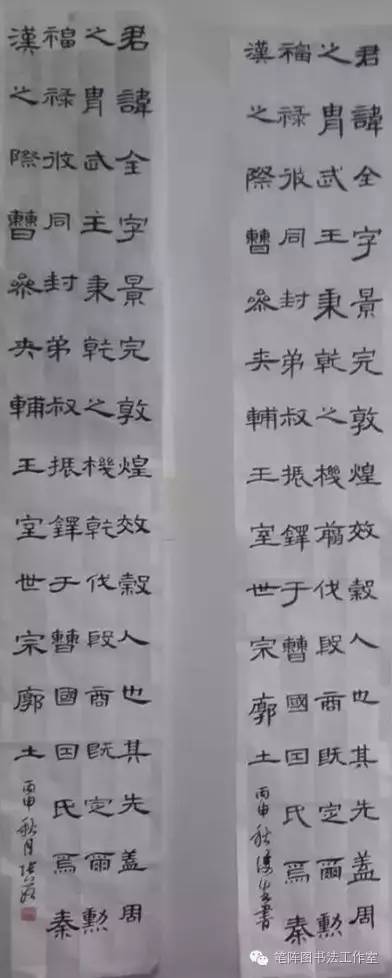 君諱全字景完敦煌效穀人也其先蓋周
之胄武王秉乾之機翦伐殷商既定爾勳
福祿攸同封弟叔振鐸于曹國因氏焉秦
漢之際曹參夾輔王室世宗廓土
丙申秋書
君諱全字景完敦煌效穀人也其先蓋周
之胄武王秉乾之機乾伐殷商既定爾勳
福祿攸同封弟叔振鐸于曹國因氏焉秦
漢之際曹參夾輔王室世宗廓土
丙申秋月
笔阵图书法工作室